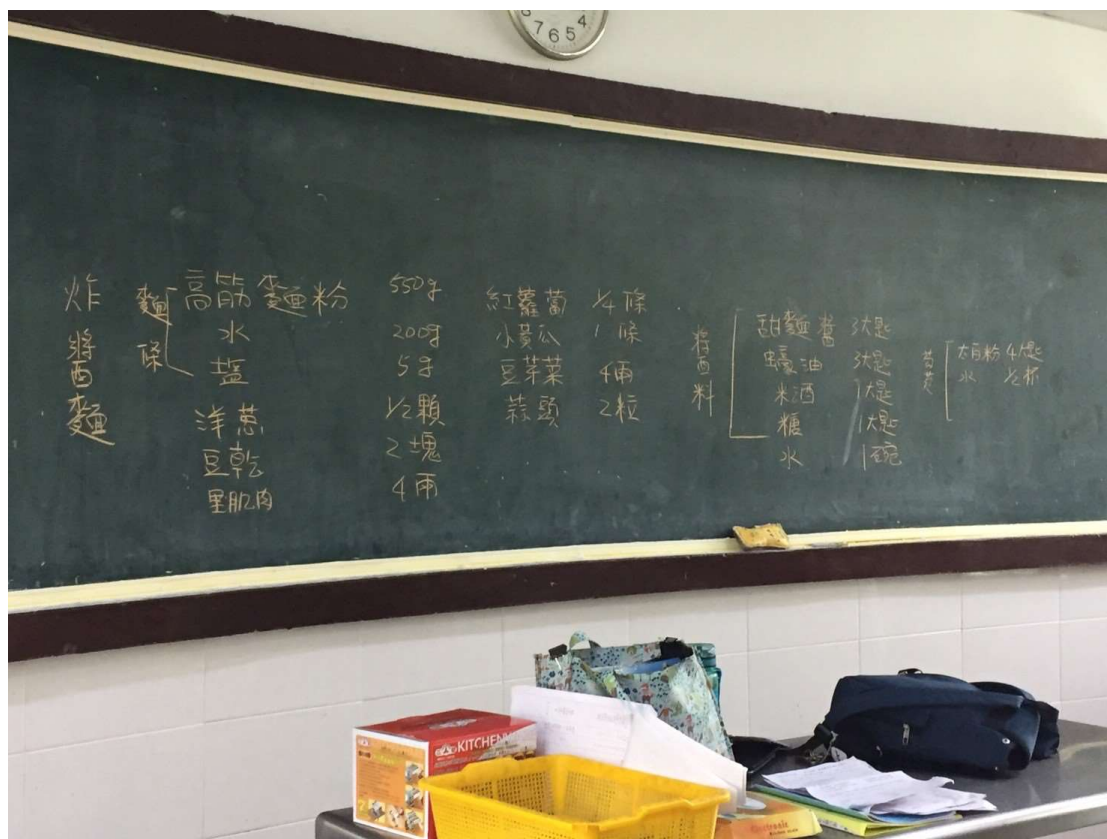 7 6 5 4
炸醬麵
麵條
高筋麵粉 550g
水 200g
盐 5g
洋蔥 1/2顆
豆乾 2塊
里肌肉 4兩
紅蘿蔔 1/4條
小黃瓜 1條
豆芽菜 4兩
蒜頭 2粒
醬料
甜麵醬 3大匙
蠔油 3大匙
米酒 1大匙
糖 1大匙
水 1碗
芶芡
太白粉 4大匙
水 1/2杯
KITCHEN
Electronic